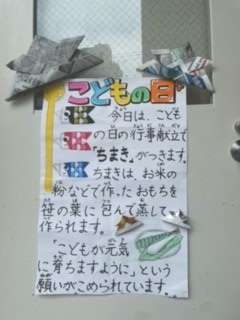 こどもの日
今日は、こども
の日の行事献立で
「ちまき」がつきます。
ちまきは、お米の
粉などで作ったおもちを
笹の葉に包んで蒸して
作られます。
「こどもが元気
に育ちますように」という
願いがこめられています。